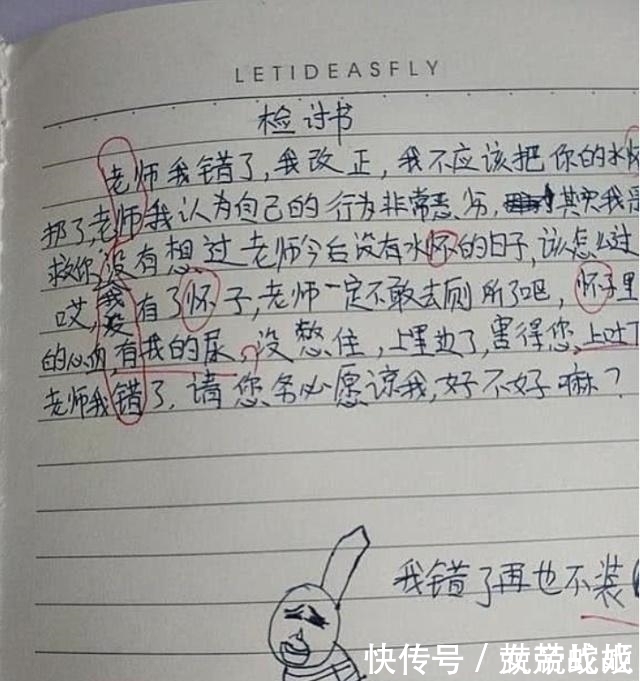 LETIDEASFLY
检讨书
老师我错了,我改正,我不应该把你的水怀
扔了,老师我认为自己的行为非常恶劣,其实我是
救你,没有想过老师今后没有水怀的日子,该怎么过
哎,我没有了怀子,老师一定不敢去厕所了吧,怀子里
的心血,有我的尿,没憋住,上里边了,害得您上吐下
老师我错了,请您务必愿谅我,好不好嘛?
我错了再也不装
快传号/